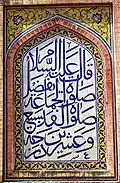 قال عليه السلام
صلوة الجماعة افضل
من صلوة الفذ بسبع
وعشرين درجة